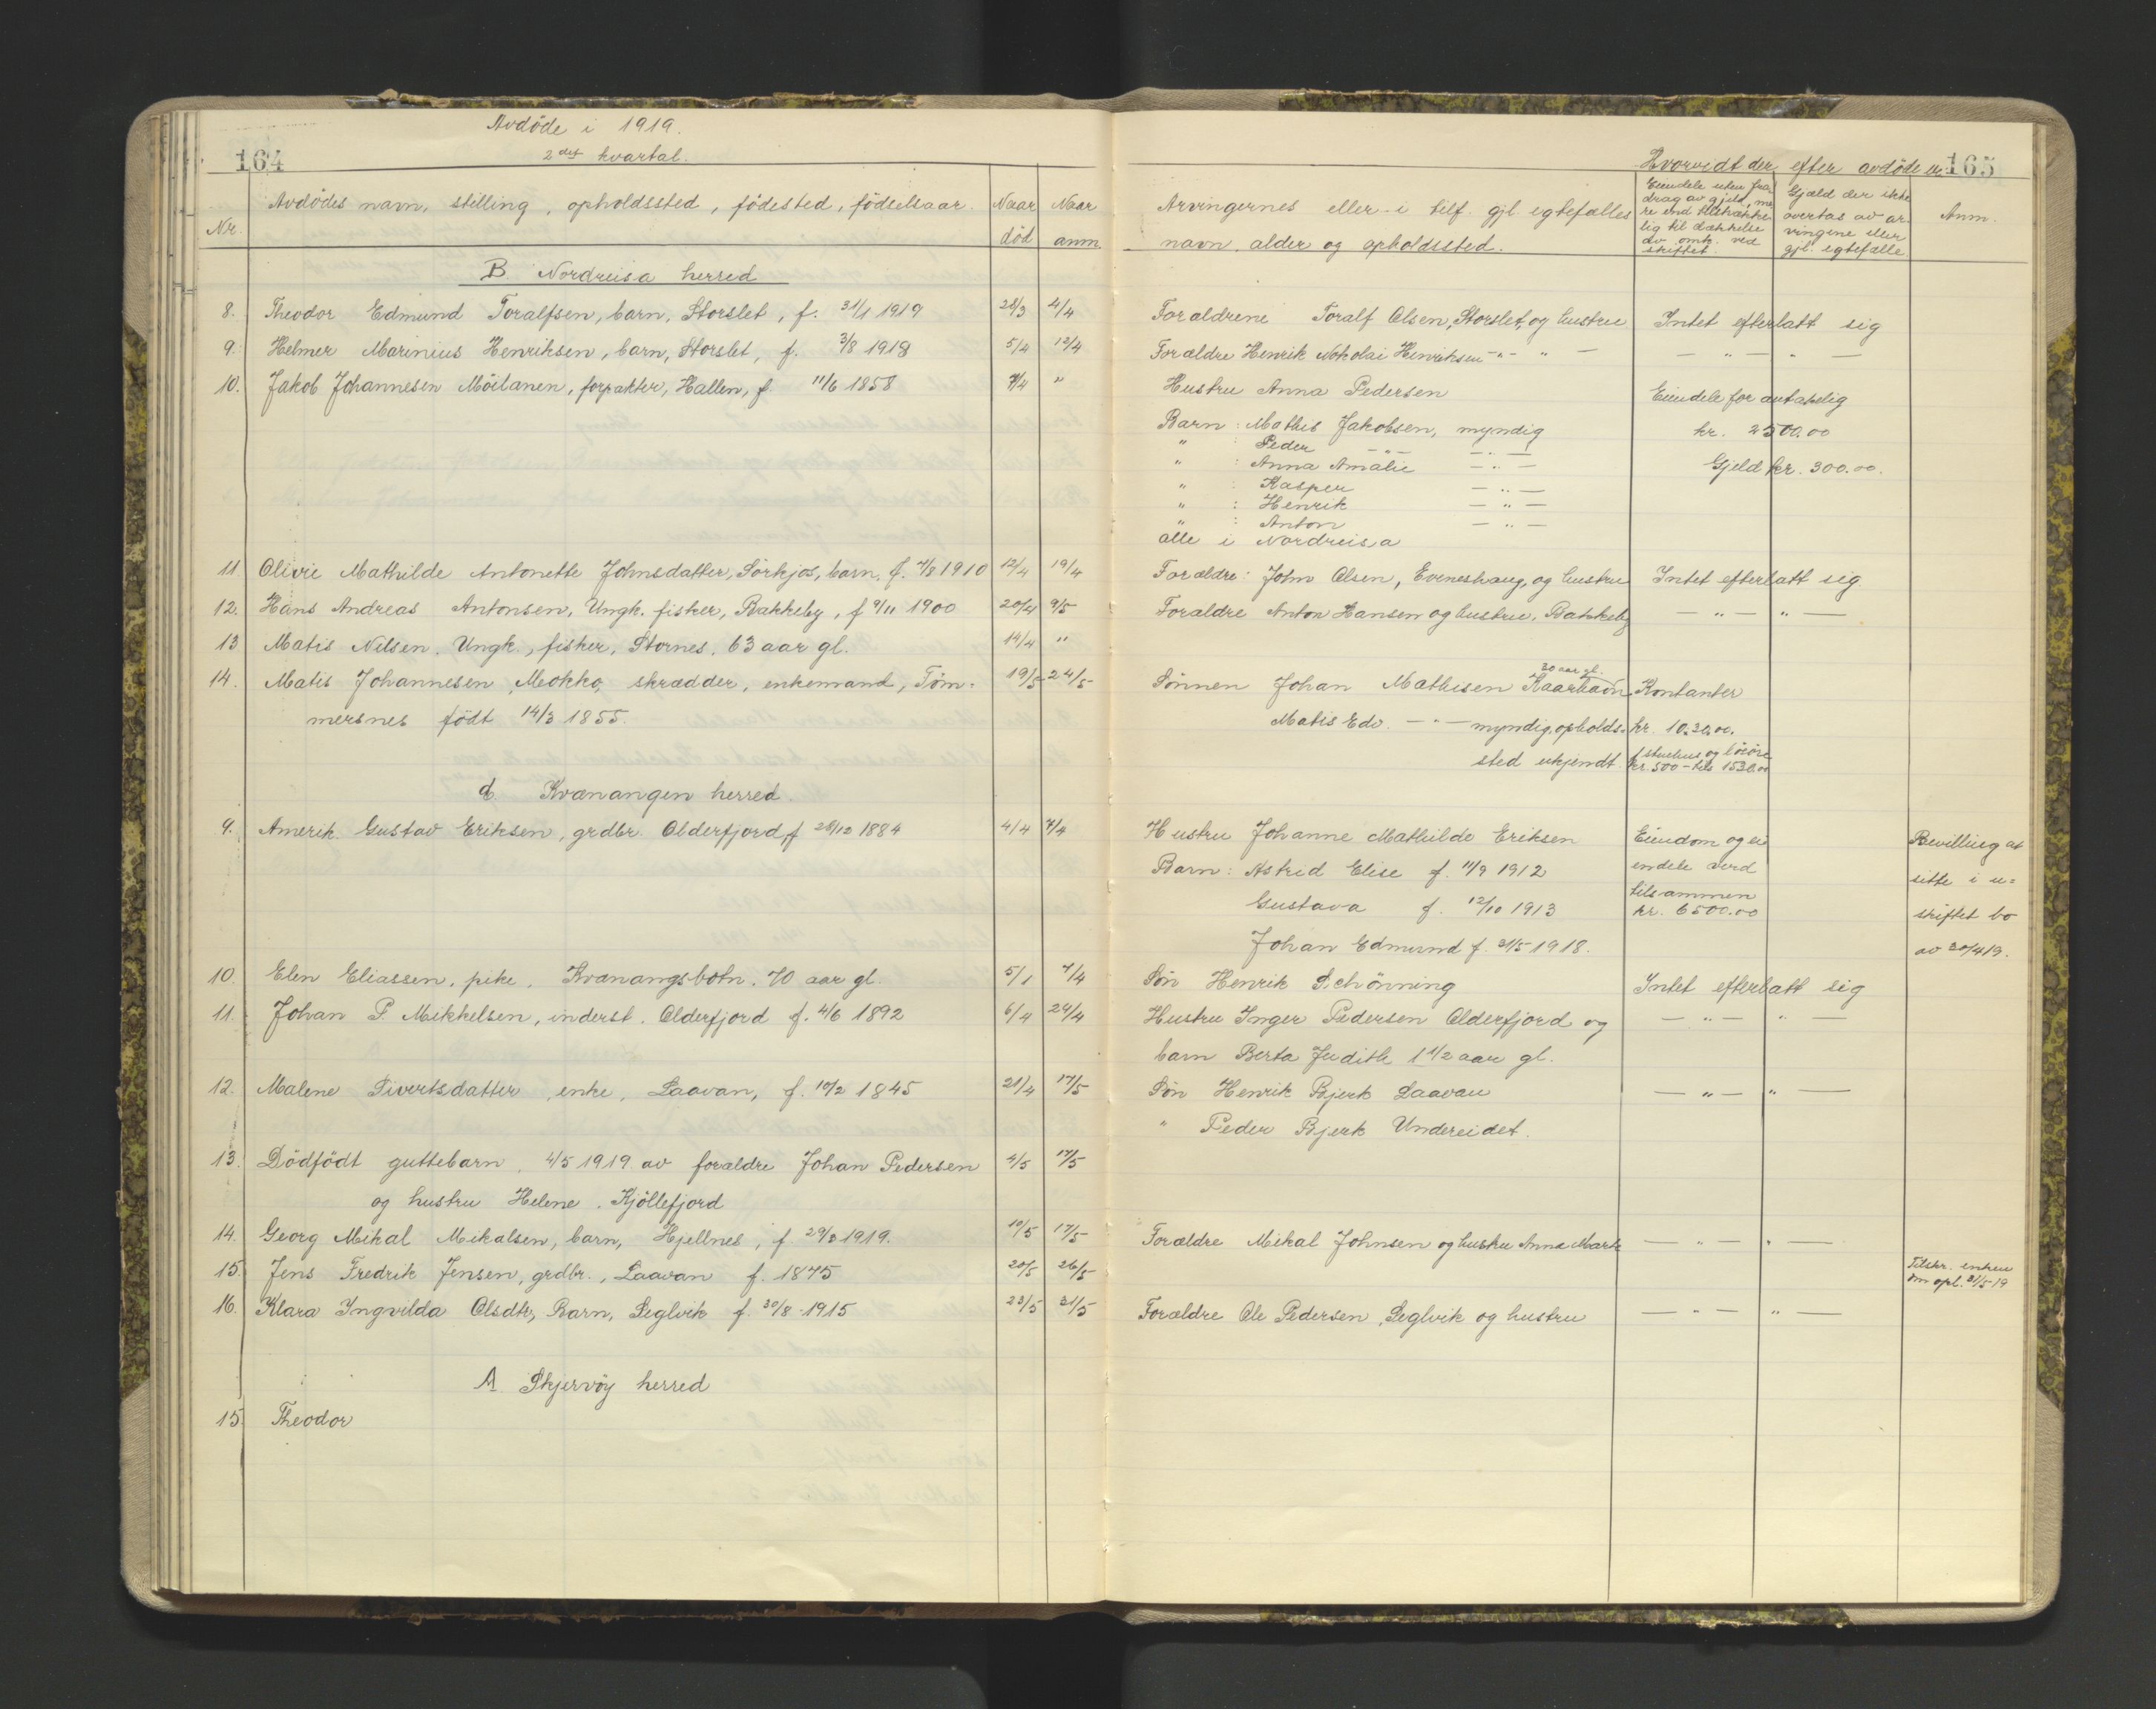 Avdöde i 1919.
164
2det kvartal.
Nr.
Avdödes navn, stilling, opholdssted, födested, födselsaar.
Naar död
Naar anm.
B. Nordreisa herred
8. Theodor Edmund Toralfsen, barn, Storslet, f. 31/1 1919 28/3 4/4
9. Helmer Marinius Henriksen, barn, Storslet, f. 3/8 1918 5/4 12/4
10. Jakob Johannesen Möilanen, forpakter, Hallen, f. 11/6 1858 7/4 "
11 Olivie Mathilde Antonette Johnsdatter, Sörkjos, barn, f. 7/8 1910 12/4 19/4
12. Hans Andreas Antonsen, Ungk. fisker, Bakkeby, f 9/11 1900 20/4 9/5
13 Matis Nilsen. Ungk., fisker, Stornes. 63 aar gl. 14/4 "
14. Matis Johannesen Mokko, skrædder, enkemand, Töm- 19/5 24/5
mersnes födt 14/3 1855.
C. Kvænangen herred.
9. Amerik Gustav Eriksen, grdbr. Olderfjord, f 28/12 1884 4/4 7/4
10. Elen Eliassen, pike, Kvænangsbotn. 70 aar gl. 5/1 7/4
11. Johan P. Mikkelsen, inderst. Olderfjord f. 4/6 1892 6/4 24/4
12. Malene Sivertsdatter, enke, Laavan, f. 10/2 1845 21/4 17/5
13. Dödfödt guttebarn, 4/5 1919 av forældre Johan Pedersen 4/5 17/5
og hustru Helene. Kjöllefjord
14. Georg Mikal Mikalsen, barn, Hjellnes, f 29/3 1919. 10/5 17/5
15. Jens Fredrik Jensen, grdbr., Laavan f. 1875 20/5 26/5
16. Klara Ingvilda Olsdtr, Barn, Seglvik f. 30/8 - 1915 23/5 31/5
A Skjervöy herred
15. Theodor
Hvorvidt der efter avdöde er: 165
Arvingernes eller i tilf. gjl. egtefælles
navn, alder og opholdssted.
Eiendele uten fra
drag av gjeld, me
re end tilstrække
lig til dækkelse
av omk. ved
skiftet.
Gjæld der ikke
overtas av ar
vingene eller
gjl. egtefælle
Anm.
Forældrene Toralf Olsen, Storslet, og hustru Intet efterlatt sig
Forældre Henrik Nokolai Henriksen - " - " - — " — " —
Hustru Anna Pedersen Eiendele for antakelig
Barn: Mathis Jakobsen, myndig kr. 2500.00
" : Peder — " — — " —
" : Anna Amalie — " — Gjeld kr. 300.00.
" : Kasper — " —
" : Henrik — " —
" : Anton — " —
alle i Nordreisa
Forældre: John Olsen, Eveneshaug, og hustru Intet efterlatt sig
Forældre Anton Hansen og hustru, Bakkeby — " — " —
30 aar gl.
Sönnen Johan Mathisen Kaarhavn Kontanter
Matis Edv. — " — myndig, opholds- kr. 1030.00.
sted ukjendt. 1 stuehus og lösöre
kr. 500 - tils 1530.00
Hustru Johanne Mathilde Eriksen Eiendom og ei
Barn: Astrid Elise f. 11/9 1912 endele verd
Gustava f. 12/10 1913 tilsammen
kr. 6500.00
Johan Edmund f. 31/5 1918.
Bevilling at
sitte i u-
skiftet bo
av 30/4 19.
Sön Henrik Schönning Intet efterlatt sig
Hustru Inger Pedersen Olderfjord og — " — " —
barn Berta Judith 1 1/2 aar gl.
Sön Henrik Bjerk Laavan — " — " —
" Peder Bjerk Undereidet.
Forældre Mikal Johnsen og hustru Anna Marta — " — " —
Tilskr. enken
om opl. 31/5 19
Forældre Ole Pedersen, Seglvik og hustru — " — " —